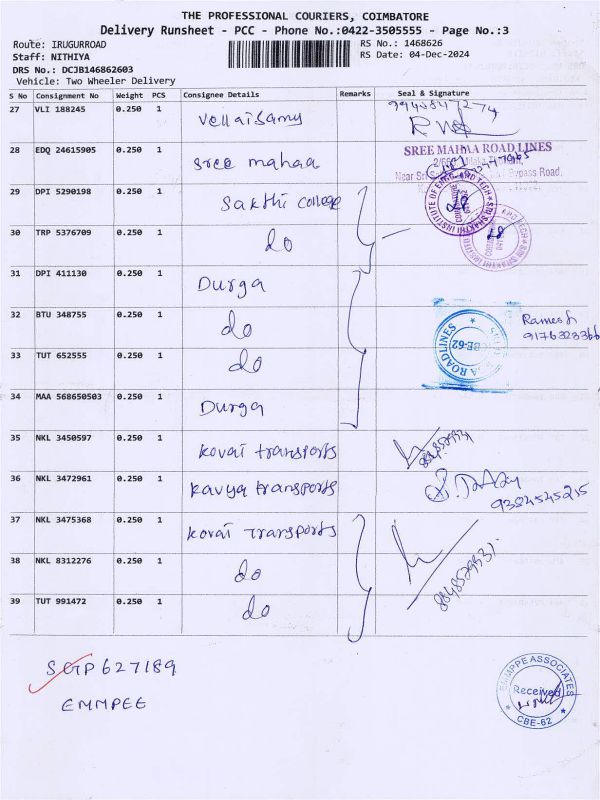 THE PROFESSIONAL COURIERS, COIMBATORE
Delivery Runsheet - PCC - Phone No.:0422-3505555 - Page No.:3
Route: IRUGURROAD
RS No.: 1468626
Staff: NITHIYA
RS Date: 04-Dec-2024
DRS No.: DCJB146862603
Vehicle: Two Wheeler Delivery
S No Consignment No Weight PCS Consignee Details Remarks Seal & Signature
27 VLI 188245 0.250 1 Vellaisamy
28 EDQ 24615905 0.250 1 sree mahaa
SREE MAHAA ROAD LINES
Bypass Road.
29 DPI 5290198 0.250 1 Sakthi college
30 TRP 5376709 0.250 1 do
31 DPI 411130 0.250 1 Durga
32 BTU 348755 0.250 1 do
Ramesh
33 TUT 652555 0.250 1 do
34 MAA 568650503 0.250 1 Durga
35 NKL 3450597 0.250 1 kovai transports
36 NKL 3472961 0.250 1 kavya transports
9384545215
37 NKL 3475368 0.250 1 kovai transports
38 NKL 8312276 0.250 1 do
39 TUT 991472 0.250 1 do
SGP 627189
EMMPEE
EMMPPE ASSOCIATES
Received
CBE-62